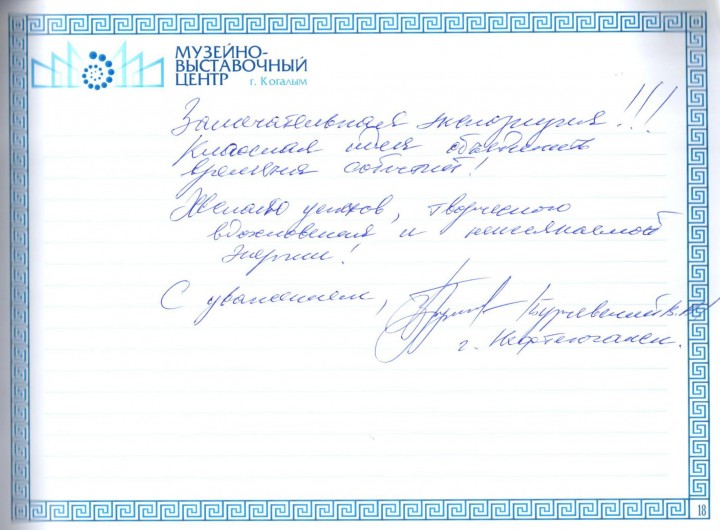 МУЗЕЙНО-
ВЫСТАВОЧНЫЙ
ЦЕНТР г. Когалым
Замечательная экспозиция!!!
Классная идея объединить
времена событий!
Желаю успехов, творческого
вдохновения и неиссякаемой
энергии!
С уважением,
г. Нефтеюганск.
18